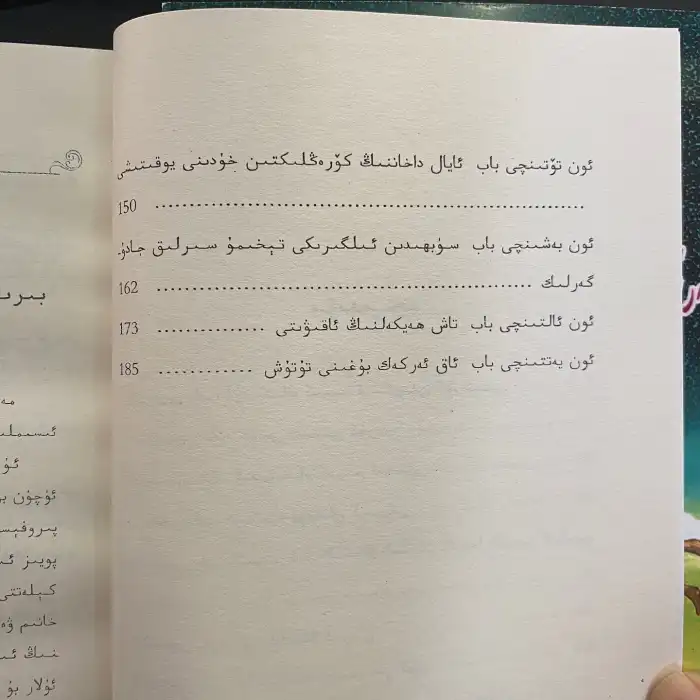 ئون تۆتىنچى باب ئايال داخاننىڭ كۆرەڭلىكتىن خۇدىنى يوقىتىشى
150 ................................................................
ئون بەشىنچى باب سۈبھىدىن ئىلگىرىكى تېخىمۇ سىرلىق جادۇ-
گەرلىك ........................................................ 162
ئون ئالتىنچى باب تاش ھەيكەلنىڭ ئاقىۋىتى ................ 173
ئون يەتتىنچى باب ئاق ئەركەك بۇغىنى تۇتۇش ............ 185
بىر
مە
ئىسىملى
ئۇ
ئۈچۈن بۇ
پىروفېس
پويىز ئى
كىلەتتى
خانىم ۋە
نىڭ ئى
ئۇلار بۇ